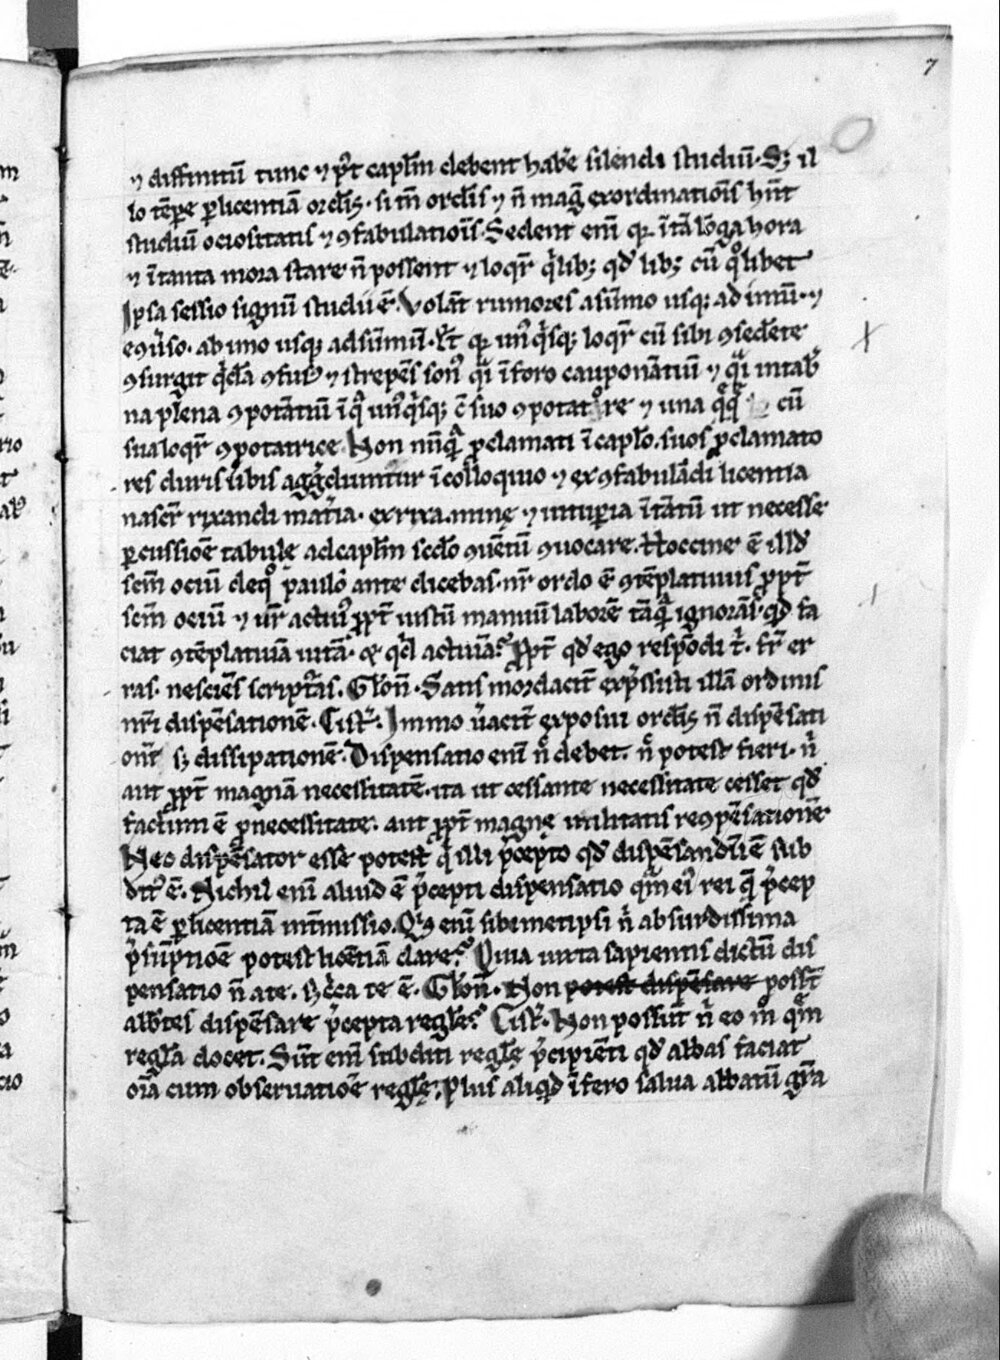 7
⁊ diffinitū tunc ⁊ p̾t capl̄m debent hab̄e silendi studiū. Sꝫ il
lo tēpe ꝑ licentiā ordīs. si tn̄ ordīs ⁊ n̄ mag̅ exordinationīs hn̄t
studiū ociositatis ⁊ ꝯfabulationīs. Sedent enī q̄ ītā lōga hora
⁊ ītanta mora stare n̄ possent ⁊ loqr̄ q̓libꝫ qd̄ libꝫ cū qͦlibet
Ipsa sessio signū studii ē. Volāt rumores asūmo usqꝫ ad imū. ⁊
eꝯūso. ab imo usqꝫ adsūmū. Et q̄ un᾿q̓sqꝫ loqr̄ cū sibi ꝯsedēte
ꝯsurgit q̓dā ꝯfus᾿ ⁊ strepēs son᾿ qͣi īforo cauponātiū ⁊ qͣi intab̄
na plena ꝯpotātiū īq᷒ un᾿q̓sqꝫ cū suo ꝯpotatore ⁊ una q̄q̄ cū
sua loqr̄ ꝯpotatrice. Non nūqͣ ꝓclamati ī caplo. suos ꝓclamato
res duris ūbis agg̾diuntur ī colloquio ⁊ ex ꝯfabulādi licentia
nascr̄ rixandi mat̾ia. ex rixa. minę ⁊ uituꝑia ītātū ut necesse
ꝑcussionē tabulę ad capl̄m scdo ꝯuētū ꝯuocare. Hoccine ē illd̄
scm̄ ociū deqͦ paulo ante dicebas. nr̄ ordo ē ꝯtēplatiuus ꝓpt̄
scm̄ ociū ⁊ ur̄ actiu᾿ ꝓpt̄ iustū manuū laborē tāqͣ ignorās qd̄ fa
ciat ꝯtēplatiuā uitā. ⁊ qd̄ actiuā? Ꝓpt̄ qd̄ ego respōdi t̓. fr̄ er
ras. nesciēs scriptͣas. Clōn̄. Satis mordacit̄ exp̄ssisti illā ordinis
nr̄i dispēsationē. Cist̄. Immo ūacit̄ exposui ordīs n̄ dispēsati
onē sꝫ dissipationē. Dispensatio enī nͦ debet. nͦ potest fieri. n̓
aut ꝓpt̄ magnā necessitatē. ita ut cessante necessitate cesset qd̄
factum ē ꝓ necessitate. aut ꝓpt̄ magnę utilitatis reꝯpēsationē
Nec dispēsator esse potest q̓ illi p̄cepto qd̄ dispēsandū ē sub
dit᾿ ē. Nichil enī aliud ē p̄cepti dispensatio qͣm ei᾿ rei q̄ p̄cep
ta ē ꝑ licentiā intmissio. Qͥs enī sibimetipsi n̓ absurdissima
p̄sūptionē potest licētiā dare? Quia iuxta sapientis dictū dis
pensatio n̄ a te. sꝫ cͥca te ē. Clōn̄. Non potest dispēsare posst̄
abb̄tes dispēsare p̄cepta regl̄e? Cist̄. Non possūt n̓ eo mͦ qͣm
regl̄a docet. Sūt enī subditi regl̄ę p̄cipiēti qd̄ abbas faciat
oīa cum obseruatiōe regl̄ę. Plus aliqd̄ īfero salua abbatū gr̄a